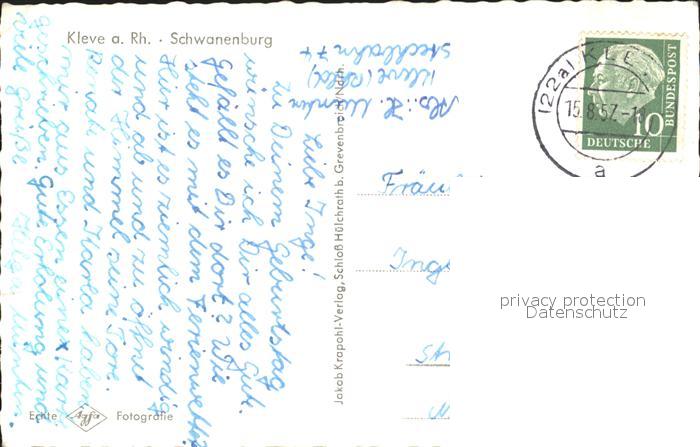 Kleve a. Rh. · Schwanenburg
Abs.: H.
Kleve (Rhld)
Stechbahn 74
Liebe Inge!
Zu Deinem Geburtstag
wünsche ich Dir alles Gute.
Gefällt es Dir dort? Wie
steht es mit dem Ferienwetter
Hier ist es ziemlich windig
und ab und zu öffnet
der Himmel seine Tore.
und Karla haben
mir aus Essen eine Karte
geschrieben. Gute Erholung und
viele Grüße
Echte Agfa Fotografie
Jakob Krapohl-Verlag, Schloß Hülchrath b. Grevenbroich/Ndrh.
(22a) KLE
15.8.57.-1
a
10
DEUTSCHE
BUNDESPOST
Fräu
Inge
St
privacy protection
Datenschutz